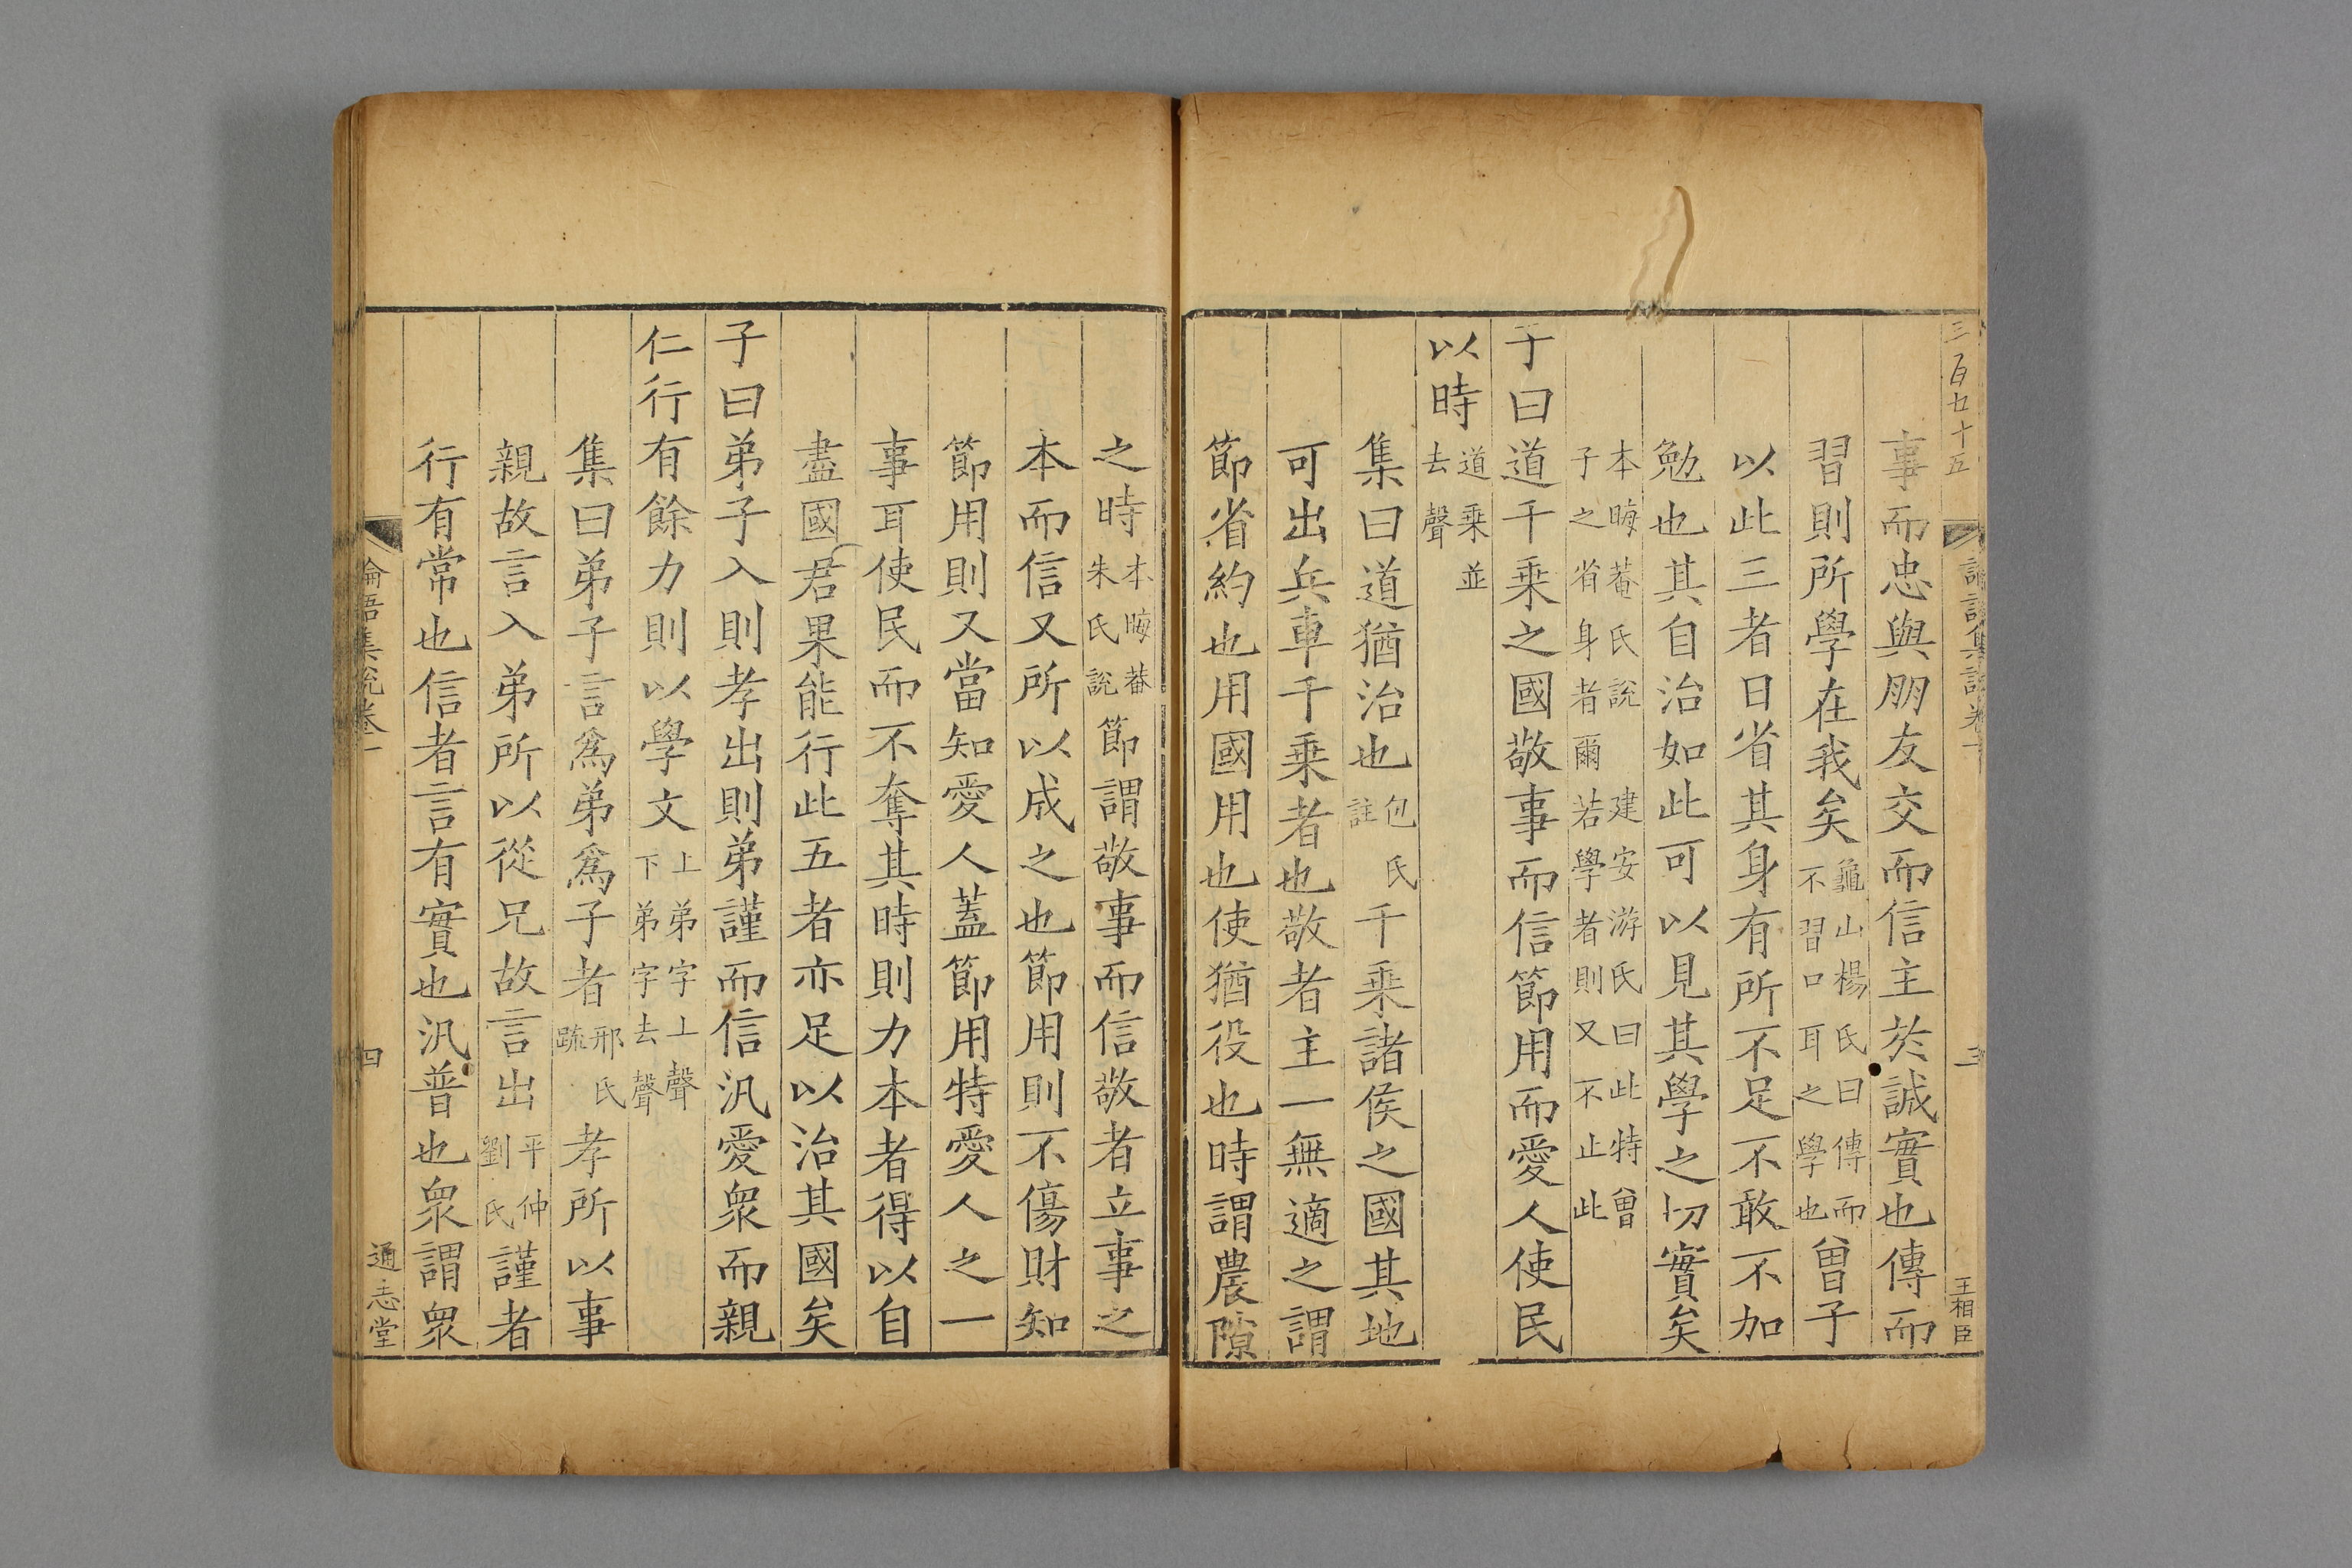 三百廿十五
論語集說卷一
三
王相臣
事而忠與朋友交而信主於誠實也傳而
習則所學在我矣龜山楊氏曰傳而不習口耳之學也曾子
以此三者日省其身有所不足不敢不加
勉也其自治如此可以見其學之切實矣
本晦菴氏說 建安游氏曰此特曾子之省身者爾若學者則又不止此
子曰道千乘之國敬事而信節用而愛人使民
以時道乘並去聲
集曰道猶治也包氏註千乘諸侯之國其地
可出兵車千乘者也敬者主一無適之謂
節省約也用國用也使猶役也時謂農隙
之時本晦菴朱氏說節謂敬事而信敬者立事之
本而信又所以成之也節用則不傷財知
節用則又當知愛人蓋節用特愛人之一
事耳使民而不奪其時則力本者得以自
盡國君果能行此五者亦足以治其國矣
子曰弟子入則孝出則弟謹而信汎愛眾而親
仁行有餘力則以學文上弟字上聲下弟字去聲
集曰弟子言為弟為子者邢氏疏孝所以事
親故言入弟所以從兄故言出平仲劉氏謹者
行有常也信者言有實也汎普也眾謂眾
論語集說卷一
四
通志堂